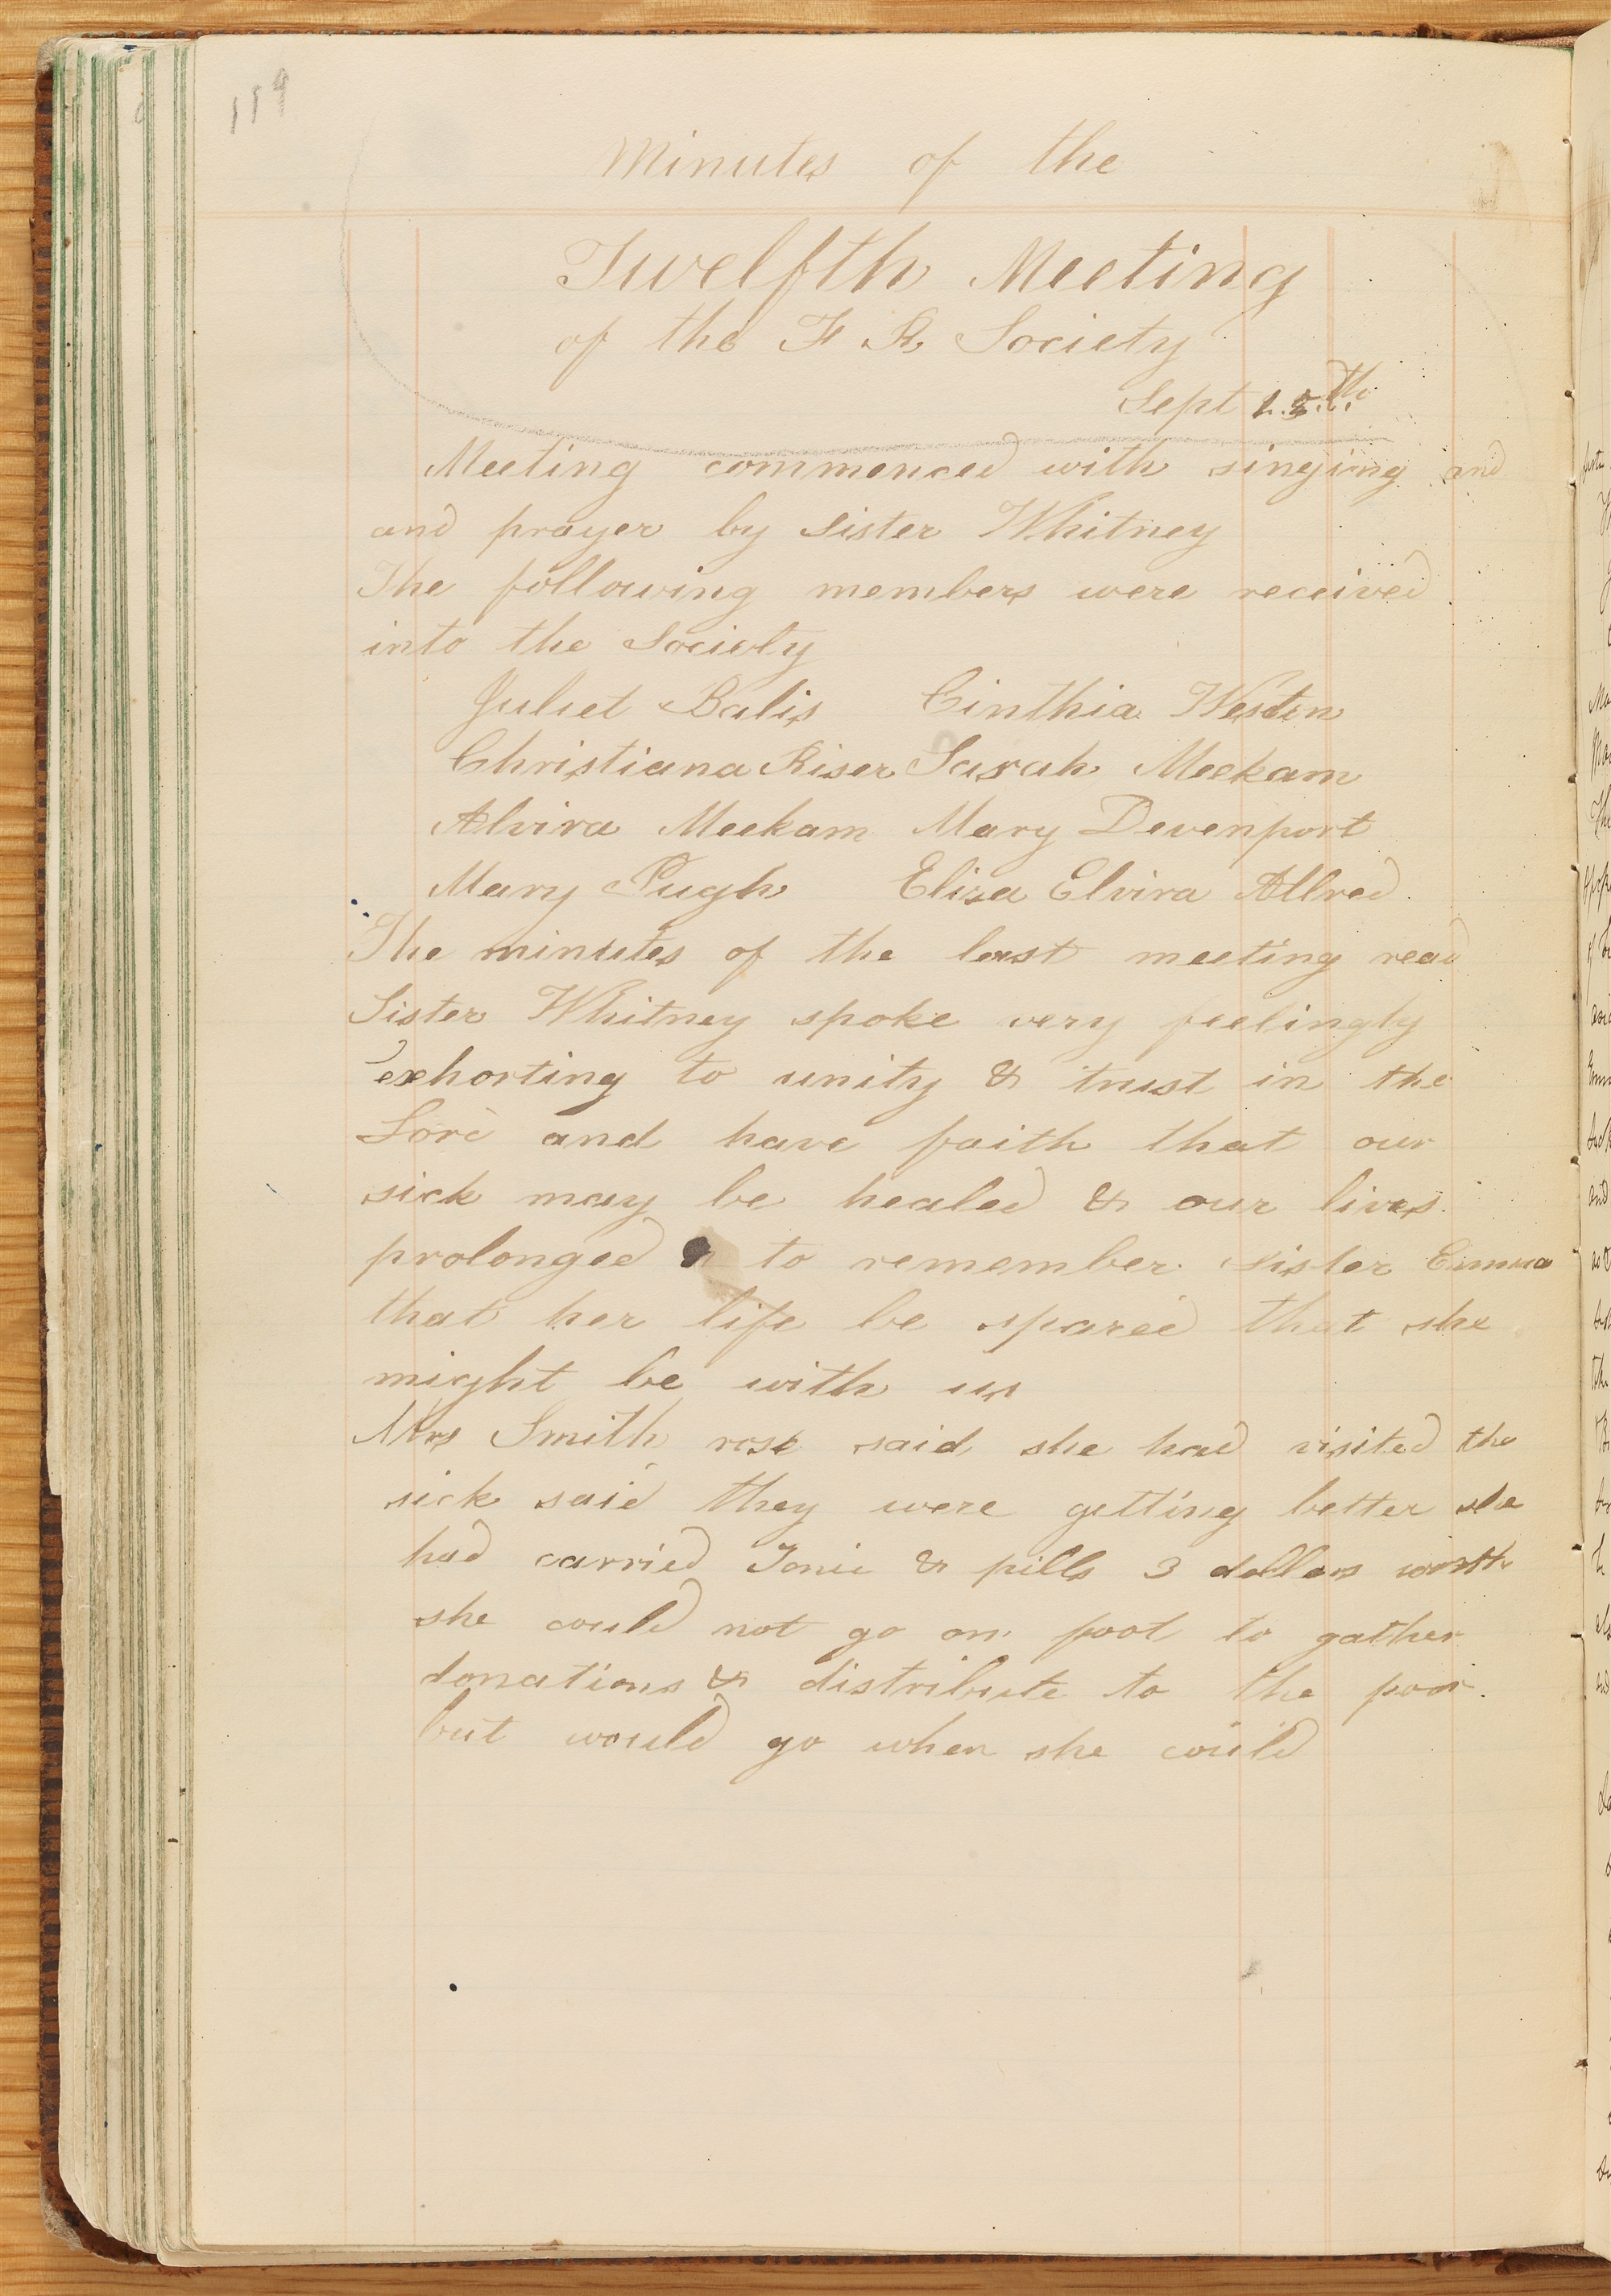 119
Minutes of the
Twelfth Meeting
of the F R Society
Sept 15th
Meeting commenced with singing and
and prayer by Sister Whitney
The following members were received
into the Society
Juliet Balis Cinthia Weston
Christiana Riser Sarah Meekam
Alvira Meekam Mary Devenport
Mary Pugh Eliza Elvira Allred
The minutes of the last meeting read
Sister Whitney spoke very feelingly
exhorting to unity & trust in the
Lord and have faith that our
sick may be healed & our lives
prolonged to remember sister Emma
that her life be spared that she
might be with us
Mrs Smith rose said she had visited the
sick said they were getting better she
had carried Tonic & pills 3 dollars worth
she could not go on foot to gather
donations & distribute to the poor.
but would go when she could